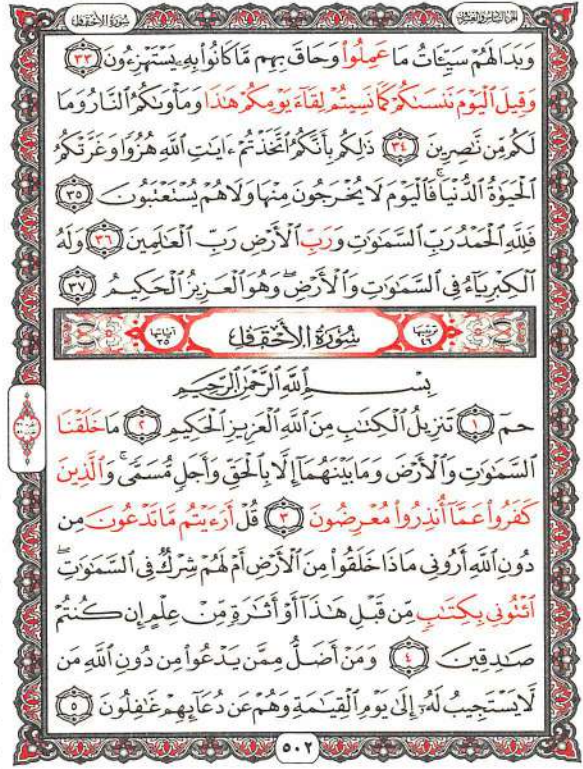 الجزء السادس والعشرون سُورَةُ الأَحْقَافِ
وَبَدَا لَهُمْ سَيِّـَٔاتُ مَا عَمِلُوا۟ وَحَاقَ بِهِم مَّا كَانُوا۟ بِهِۦ يَسْتَهْزِءُونَ ٣٣
وَقِيلَ ٱلْيَوْمَ نَنسَىٰكُمْ كَمَا نَسِيتُمْ لِقَآءَ يَوْمِكُمْ هَـٰذَا وَمَأْوَىٰكُمُ ٱلنَّارُ وَمَا
لَكُم مِّن نَّـٰصِرِينَ ٣٤ ذَٰلِكُم بِأَنَّكُمُ ٱتَّخَذْتُمْ ءَايَـٰتِ ٱللَّهِ هُزُوًا وَغَرَّتْكُمُ
ٱلْحَيَوٰةُ ٱلدُّنْيَا ۚ فَٱلْيَوْمَ لَا يُخْرَجُونَ مِنْهَا وَلَا هُمْ يُسْتَعْتَبُونَ ٣٥
فَلِلَّهِ ٱلْحَمْدُ رَبِّ ٱلسَّمَـٰوَٰتِ وَرَبِّ ٱلْأَرْضِ رَبِّ ٱلْعَـٰلَمِينَ ٣٦ وَلَهُ
ٱلْكِبْرِيَآءُ فِى ٱلسَّمَـٰوَٰتِ وَٱلْأَرْضِ ۖ وَهُوَ ٱلْعَزِيزُ ٱلْحَكِيمُ ٣٧
ترتيبها ٤٦ سُورَةُ الأَحْقَافِ آياتها ٣٥
بِسْمِ ٱللَّهِ ٱلرَّحْمَـٰنِ ٱلرَّحِيمِ
حمٓ ١ تَنزِيلُ ٱلْكِتَـٰبِ مِنَ ٱللَّهِ ٱلْعَزِيزِ ٱلْحَكِيمِ ٢ مَا خَلَقْنَا
ٱلسَّمَـٰوَٰتِ وَٱلْأَرْضَ وَمَا بَيْنَهُمَآ إِلَّا بِٱلْحَقِّ وَأَجَلٍ مُّسَمًّى ۚ وَٱلَّذِينَ
كَفَرُوا۟ عَمَّآ أُنذِرُوا۟ مُعْرِضُونَ ٣ قُلْ أَرَءَيْتُم مَّا تَدْعُونَ مِن
دُونِ ٱللَّهِ أَرُونِى مَاذَا خَلَقُوا۟ مِنَ ٱلْأَرْضِ أَمْ لَهُمْ شِرْكٌ فِى ٱلسَّمَـٰوَٰتِ ۖ
ٱئْتُونِى بِكِتَـٰبٍ مِّن قَبْلِ هَـٰذَآ أَوْ أَثَـٰرَةٍ مِّنْ عِلْمٍ إِن كُنتُمْ
صَـٰدِقِينَ ٤ وَمَنْ أَضَلُّ مِمَّن يَدْعُوا۟ مِن دُونِ ٱللَّهِ مَن
لَّا يَسْتَجِيبُ لَهُۥٓ إِلَىٰ يَوْمِ ٱلْقِيَـٰمَةِ وَهُمْ عَن دُعَآئِهِمْ غَـٰفِلُونَ ٥
٥٠٢